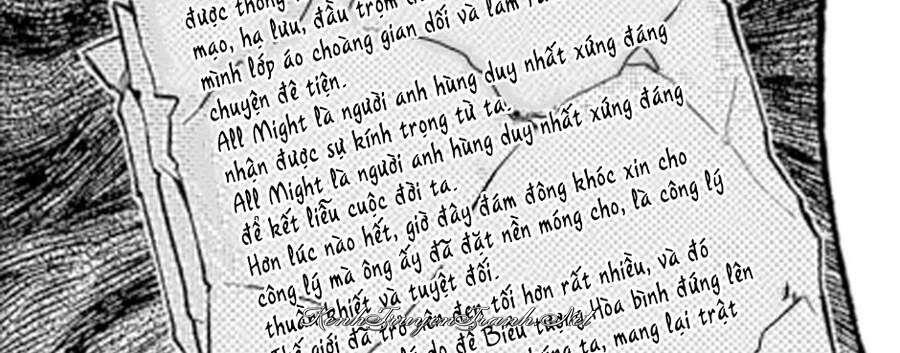 được thông
mạo, hạ lưu, đầu trộm
mình lốp áo choàng gian dối và làm
chuyện đê tiện.
All Might là người anh hùng duy nhất xứng đáng
nhận được sự kính trọng từ ta.
All Might là người anh hùng duy nhất xứng đáng
để kết liễu cuộc đời ta.
Hơn lúc nào hết, giờ đây đám đông khóc xin cho
công lý mà ông ấy đã đặt nền móng cho, là công lý
thuần khiết và tuyệt đối.
Thế giới đã trở nên đen tối hơn rất nhiều, và đó
lý do để Biểu tượng Hòa bình đứng lên
ta, mang lại trật